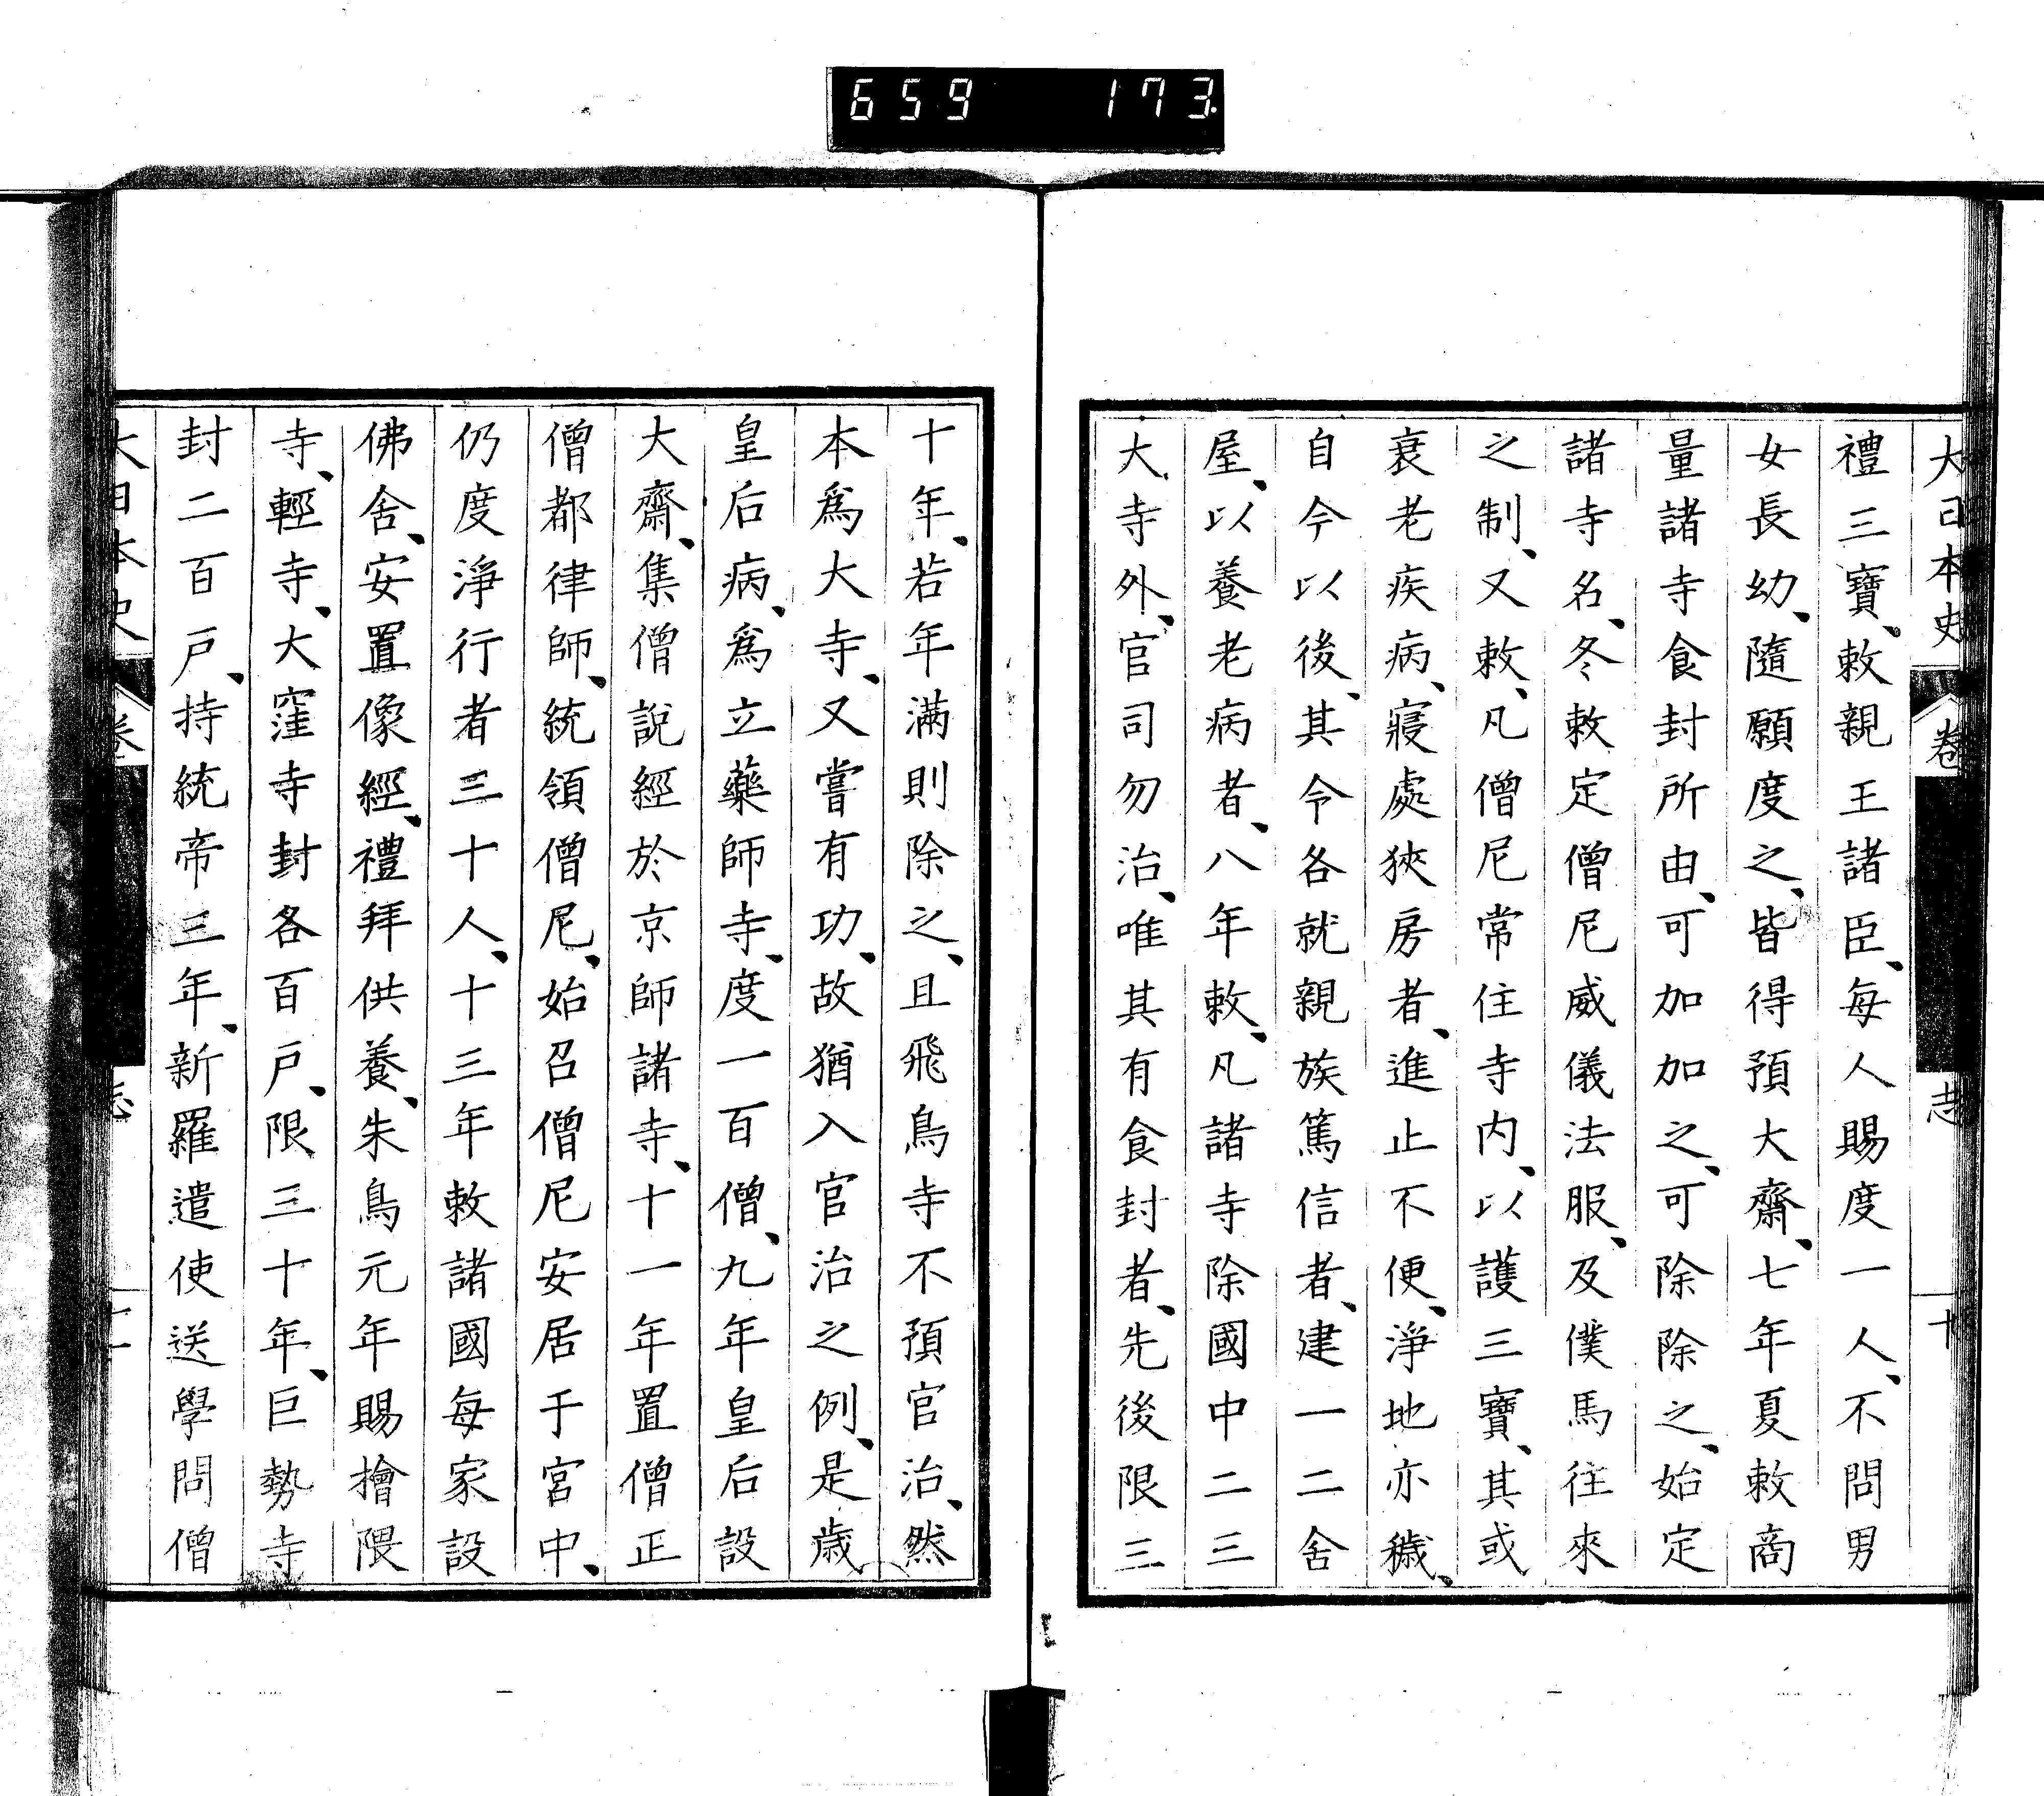 659 173
大日本史 卷 志 十
禮三寶、敕親王諸臣、每人賜度一人、不問男
女長幼、隨願度之、皆得預大齋、七年夏敕商
量諸寺食封所由、可加加之、可除除之、始定
諸寺名、冬敕定僧尼威儀法服、及僕馬往來
之制、又敕、凡僧尼常住寺內、以護三寶、其或
衰老疾病、寢處狹房者、進止不便、淨地亦穢、
自今以後、其令各就親族篤信者、建一二舍
屋、以養老病者、八年敕、凡諸寺除國中二三
大寺外、官司勿治、唯其有食封者、先後限三
十年、若年滿則除之、且飛鳥寺不預官治、然
本爲大寺、又嘗有功、故猶入官治之例、是歲
皇后病、爲立藥師寺、度一百僧、九年皇后設
大齋、集僧說經於京師諸寺、十一年置僧正
僧都律師、統領僧尼、始召僧尼安居于宮中、
仍度淨行者三十人、十三年敕諸國每家設
佛舍、安置像經、禮拜供養、朱鳥元年賜檜隈
寺、輕寺、大窪寺封各百戶、限三十年、巨勢寺
封二百戶、持統帝三年、新羅遣使送學問僧
大日本史 卷 志 十一